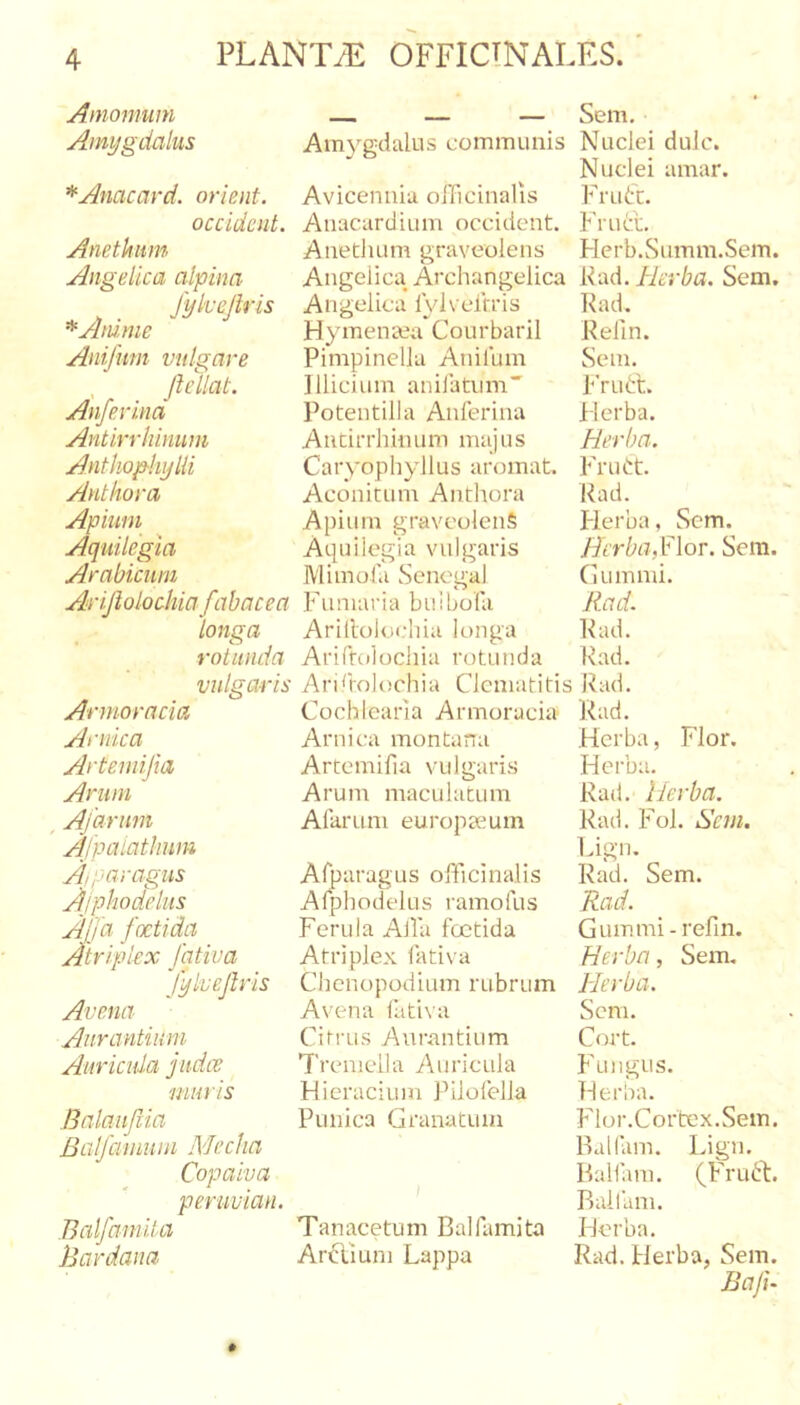 4 PLANTÆ OFFICINALES.
Amomum — — — Sem.
Amygdalus Amygdalus communis Nuclei dulc.
Nuclei amar.
*Anacard. orient. Avicennia officinalis Fruct.
occident. Anacardium occident. Fruct.
Anethum Anethum graveolens Herb.Summ.Sem.
Angelica alpina Angelica Archangelica Rad. Herba. Sem.
ſylveſtris Angelica ſylveſtris Rad.
*Anime Hymenæa Courbaril Reſin.
Aniſum vulgare Pimpinella Aniſum Sem.
ſtellat. Illicium aniſatum Fruct.
Anſerina Potentilla Anſerina Herba.
Antirrhinum Antirrhinum majus Herba.
Anthophylli Caryophyllus aromat. Fruct.
Anthora Aconitum Anthora Rad.
Apium Apium graveolens Herba, Sem.
Aquilegia Aquilegia vulgaris Herba,Flor. Sem.
Arabicum Mimoſa Senegal Gummi.
Ariſtolochia fabacea Fumaria bulboſa Rad.
longa Ariſtolochia longa Rad.
rotunda Ariſtolochia rotunda Rad.
vulgaris Ariſtolochia Clematitis Rad.
Armoracia Cochlearia Armoracia Rad.
Arnica Arnica montana Herba, Flor.
Artemiſia Artemiſia vulgaris Herba.
Arum Arum maculatum Rad. Herba.
Aſarum Aſarum europæum Rad. Fol. Sem.
Aſpalathum Lign.
Aſparagus Aſparagus officinalis Rad. Sem.
Aſphodelus Aſphodelus ramoſus Rad.
Aſſa fœtida Ferula Aſſa fœtida Gummi-reſin.
Atriplex ſativa Atriplex ſativa Herba, Sem.
ſylveſtris Chenopodium rubrum Herba.
Avena Avena ſativa Sem.
Aurantium Citrus Aurantium Cort.
Auricula judæ Tremella Auricula Fungus.
muris Hieracium Piloſella Herba.
Balauſtia Punica Granatum Flor.Cortex.Sem.
Balſamum Mecha Balſam. Lign.
Copaiva Balſam. (Fruct.
peruvian. Balſam.
Balſamita Tanacetum Balſamita Herba.
Bardana Arctium Lappa Rad. Herba, Sem.
Baſi-